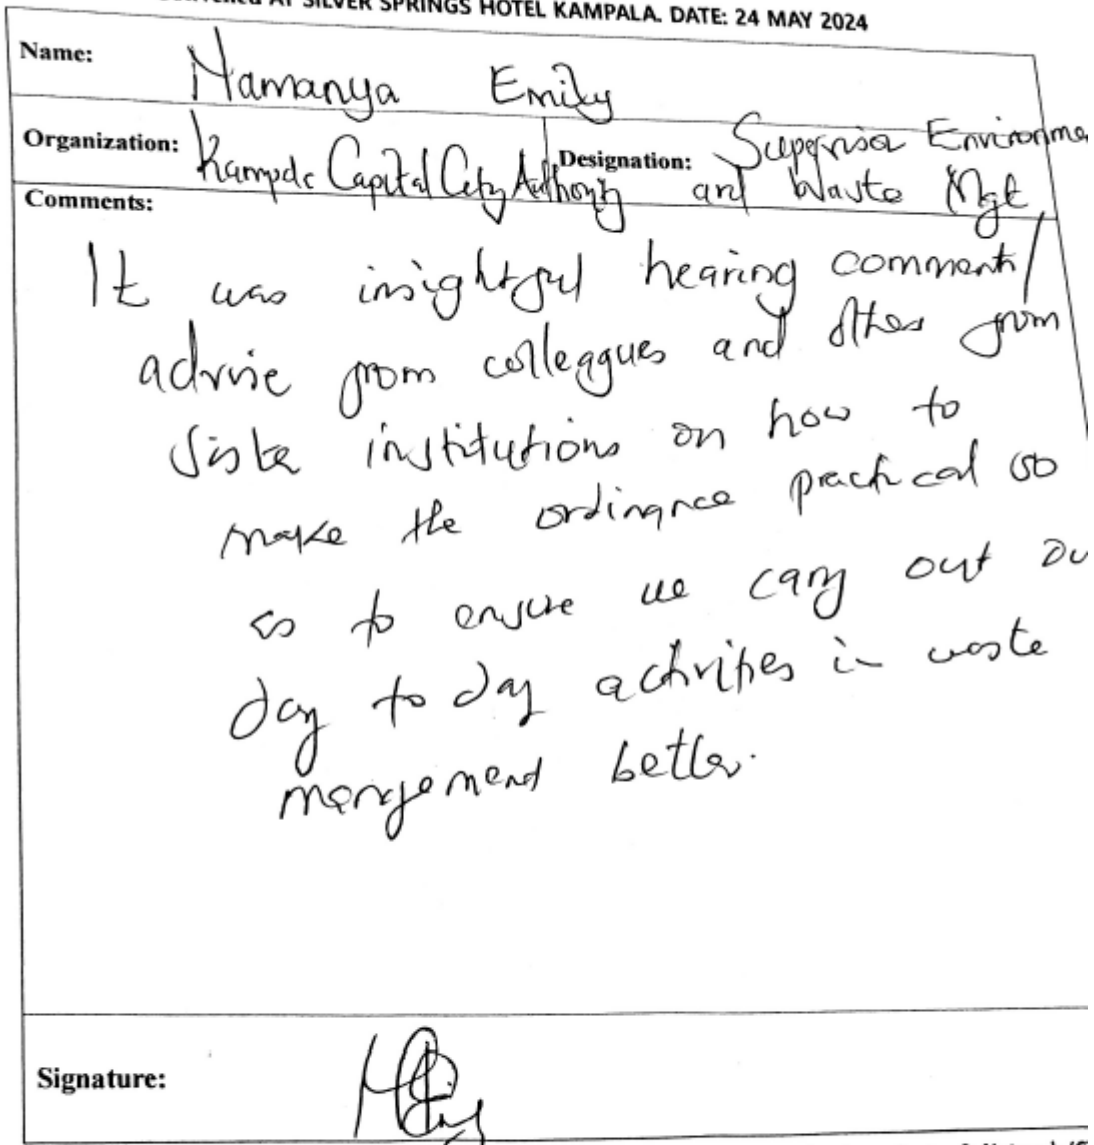 AT SILVER SPRINGS HOTEL KAMPALA. DATE: 24 MAY 2024
Name: Namanya Emily
Organization: Kampala Capital City Authority Designation: Supervisor Environme
and Waste Mgt
Comments:
It was insightful hearing comments/
advise from colleagues and others from
Sister institutions on how to
make the ordinance practical so
as to ensure we carry out ou
day to day activities in waste
management better.
Signature: